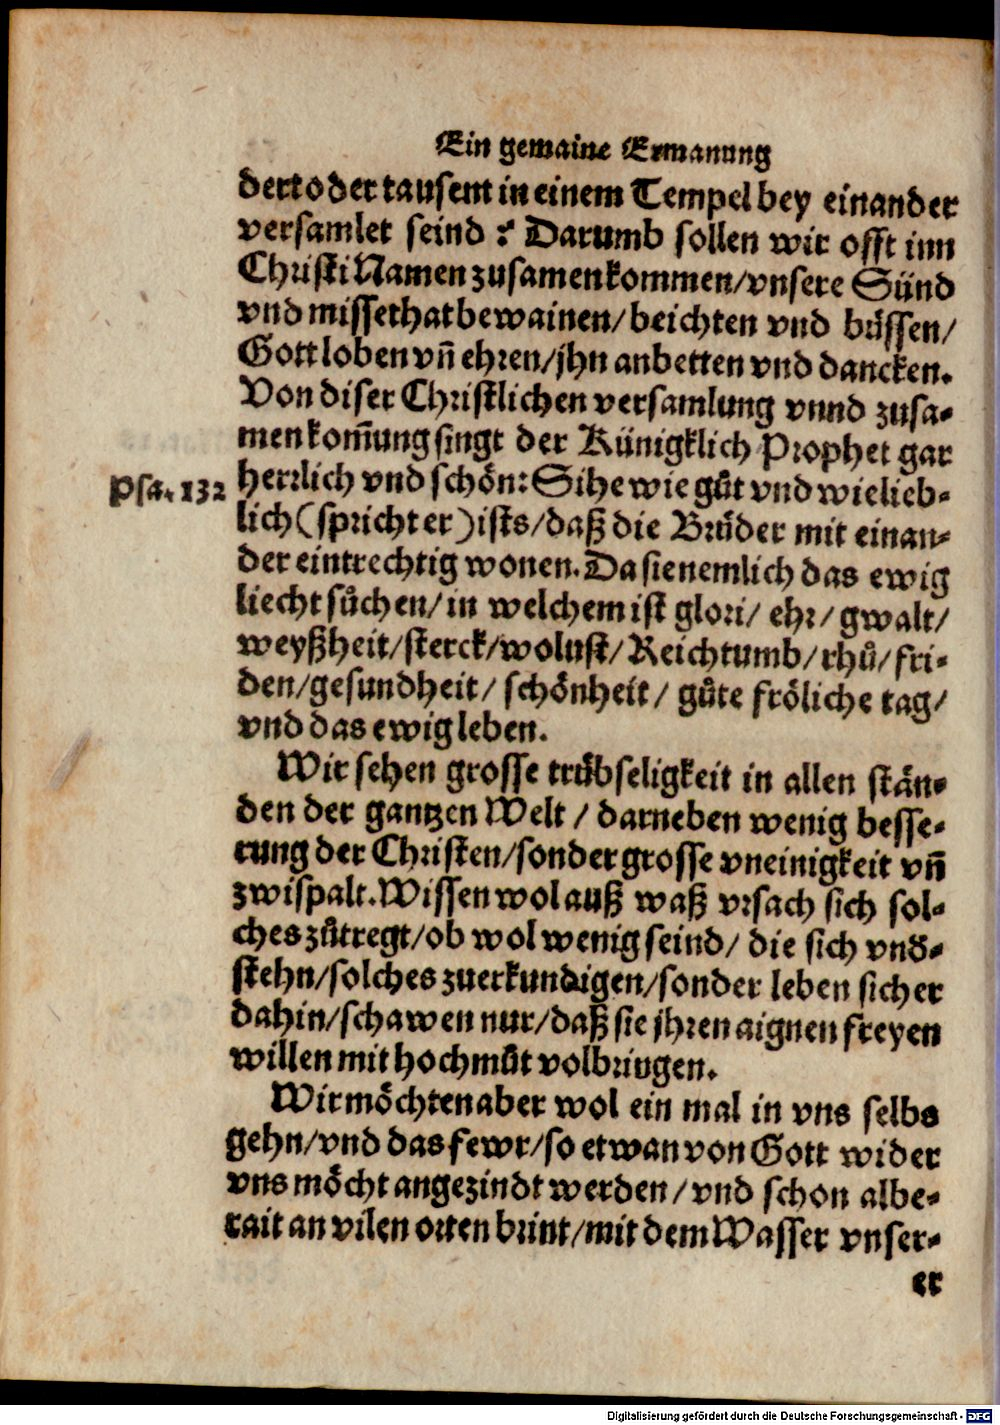 Ein gemaine Ermanung
dert oder tausent in einem Tempel bey einander
versamlet seind? Darumb sollen wir offt inn
Christi Namen zusamen kommen/vnsere Sünd
vnd missethat bewainen/beichten vnd büssen/
Gott loben vñ ehren/jhn anbetten vnd dancken.
Von diser Christlichen versamlung vnnd zusa-
men kom̃ung singt der Künigklich Prophet gar
Psa. 132 herrlich vnd schön: Sihe wie gůt vnd wie lieb-
lich (spricht er) ists/daß die Brůder mit einan-
der eintrechtig wonen. Da sie nemlich das ewig
liecht sůchen/in welchem ist glori/ ehr/ gwalt/
weyßheit/sterck/wolust/Reichtumb/rhů/fri-
den/gesundheit/ schönheit/ gůte fröliche tag/
vnd das ewig leben.
Wir sehen grosse trübseligkeit in allen stän-
den der gantzen Welt / darneben wenig besse-
rung der Christen/sonder grosse vneinigkeit vñ
zwispalt. Wissen wol auß waß vrsach sich sol-
ches zůtregt/ob wol wenig seind/ die sich vnd̃-
stehn/solches zuerkundigen/sonder leben sicher
dahin/schawen nur/daß sie jhren aignen freyen
willen mit hochmůt volbringen.
Wir möchten aber wol ein mal in vns selbs
gehn/vnd das fewr/so etwan von Gott wider
vns möcht angezindt werden/vnd schon albe-
rait an vilen orten brint/mit dem Wasser vnser-
er
Digitalisierung gefördert durch die Deutsche Forschungsgemeinschaft - DFG